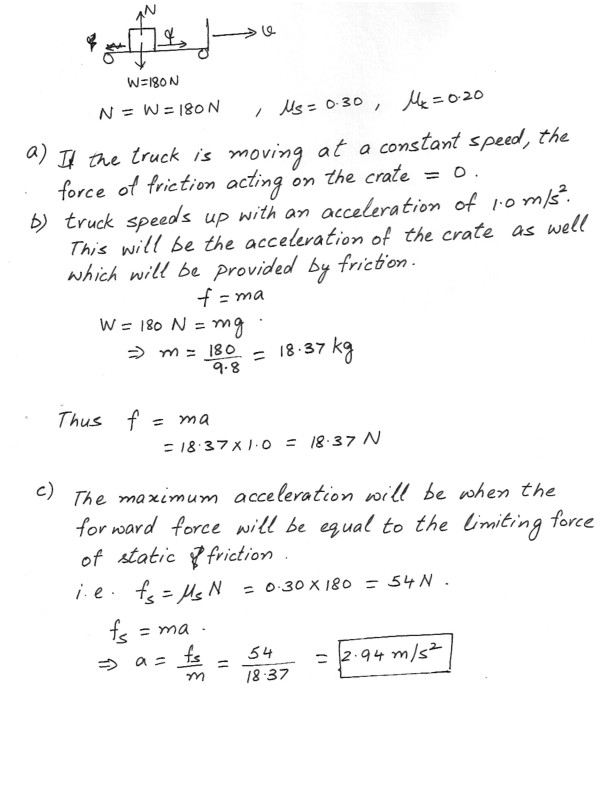 N
f
v
W=180N
N = W = 180N , μs = 0.30 , μk = 0.20
a) If the truck is moving at a constant speed, the
force of friction acting on the crate = 0.
b) truck speeds up with an acceleration of 1.0 m/s².
This will be the acceleration of the crate as well
which will be provided by friction.
f = ma
W = 180 N = mg .
⇒ m = 180/9.8 = 18.37 kg
Thus f = ma
= 18.37 x 1.0 = 18.37 N
c) The maximum acceleration will be when the
forward force will be equal to the limiting force
of static friction.
i.e. fs = μsN = 0.30 x 180 = 54 N .
fs = ma .
⇒ a = fs/m = 54/18.37 = 2.94 m/s²